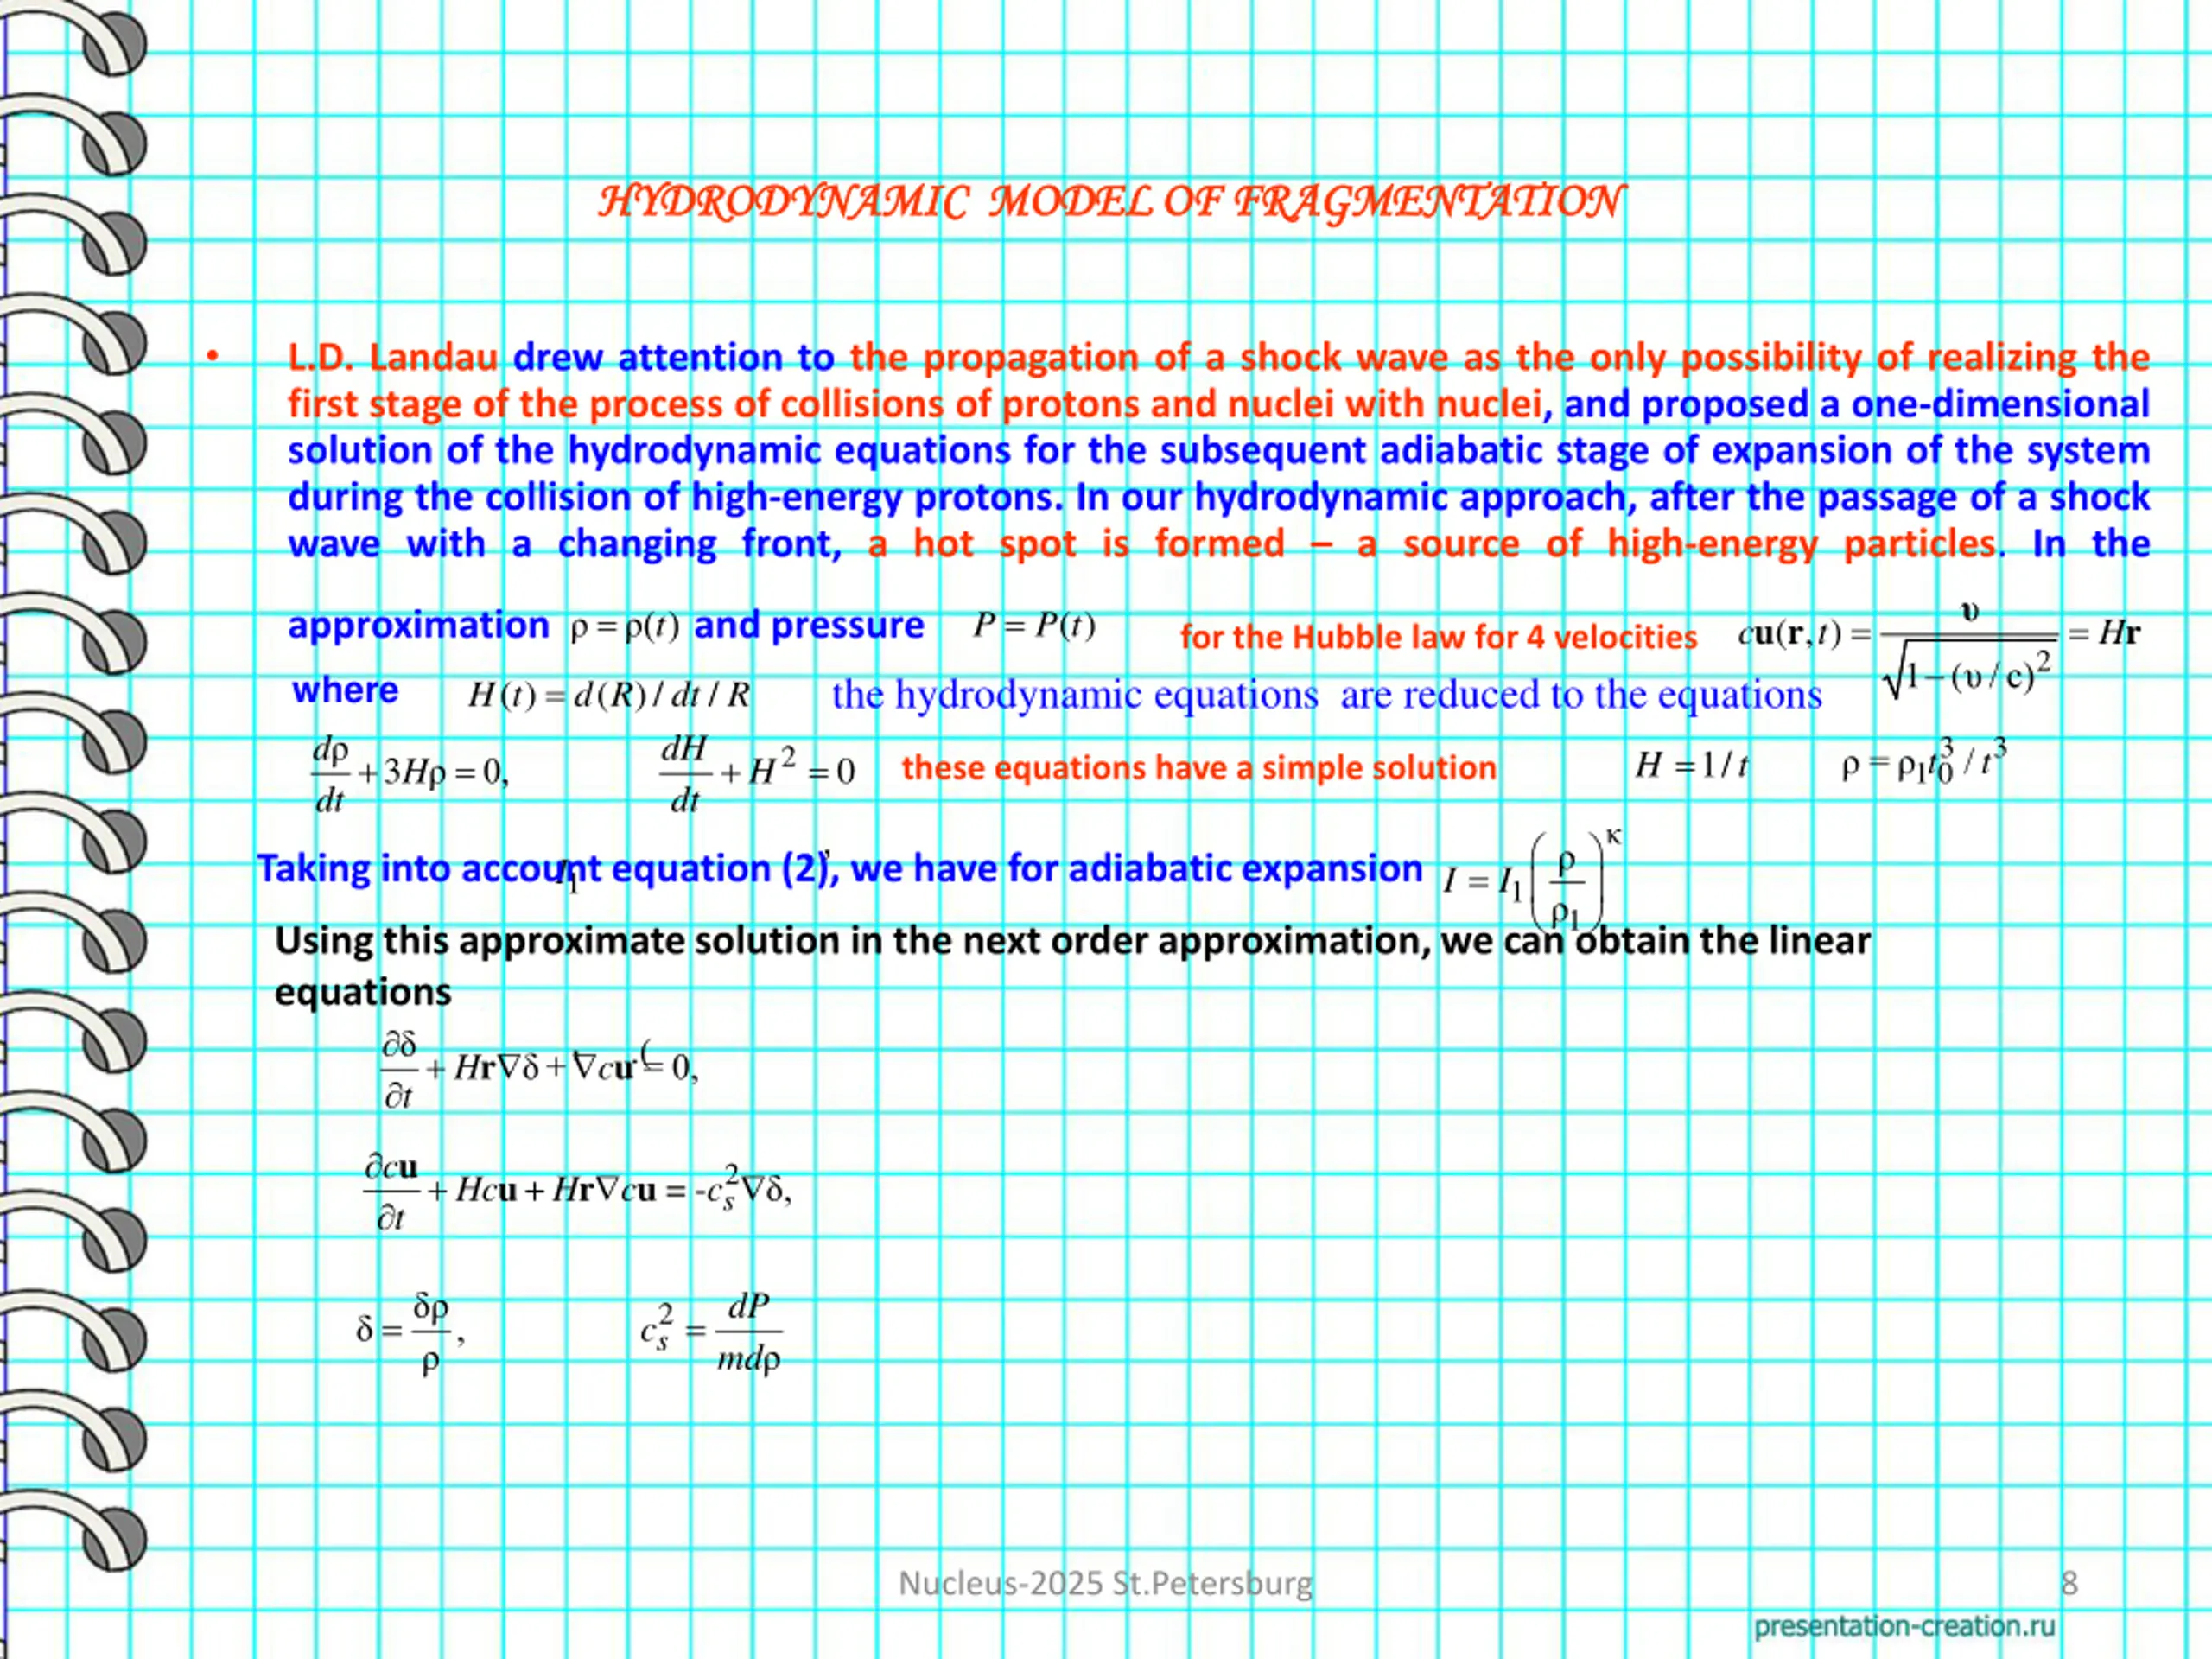 HYDRODYNAMIC MODEL OF FRAGMENTATION
• L.D. Landau drew attention to the propagation of a shock wave as the only possibility of realizing the
first stage of the process of collisions of protons and nuclei with nuclei, and proposed a one-dimensional
solution of the hydrodynamic equations for the subsequent adiabatic stage of expansion of the system
during the collision of high-energy protons. In our hydrodynamic approach, after the passage of a shock
wave with a changing front, a hot spot is formed – a source of high-energy particles. In the
approximation ρ = ρ(t) and pressure P = P(t) for the Hubble law for 4 velocities cu(r,t) = υ / √(1−(υ/c)²) = Hr
where H(t) = d(R)/dt/R the hydrodynamic equations are reduced to the equations
dρ/dt + 3Hρ = 0, dH/dt + H² = 0 these equations have a simple solution H = 1/t ρ = ρ₁t₀³/t³
Taking into account equation (2), we have for adiabatic expansion I = I₁(ρ/ρ₁)^κ
Using this approximate solution in the next order approximation, we can obtain the linear
equations
∂δ/∂t + Hr∇δ + ∇cu = 0,
∂cu/∂t + Hcu + Hr∇cu = -cₛ²∇δ,
δ = δρ/ρ, cₛ² = dP/mdρ
Nucleus-2025 St.Petersburg 8
presentation-creation.ru